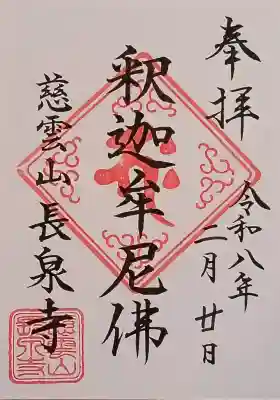 奉拝
令和八年
二月廿日
釈迦牟尼佛
慈雲山 長泉寺